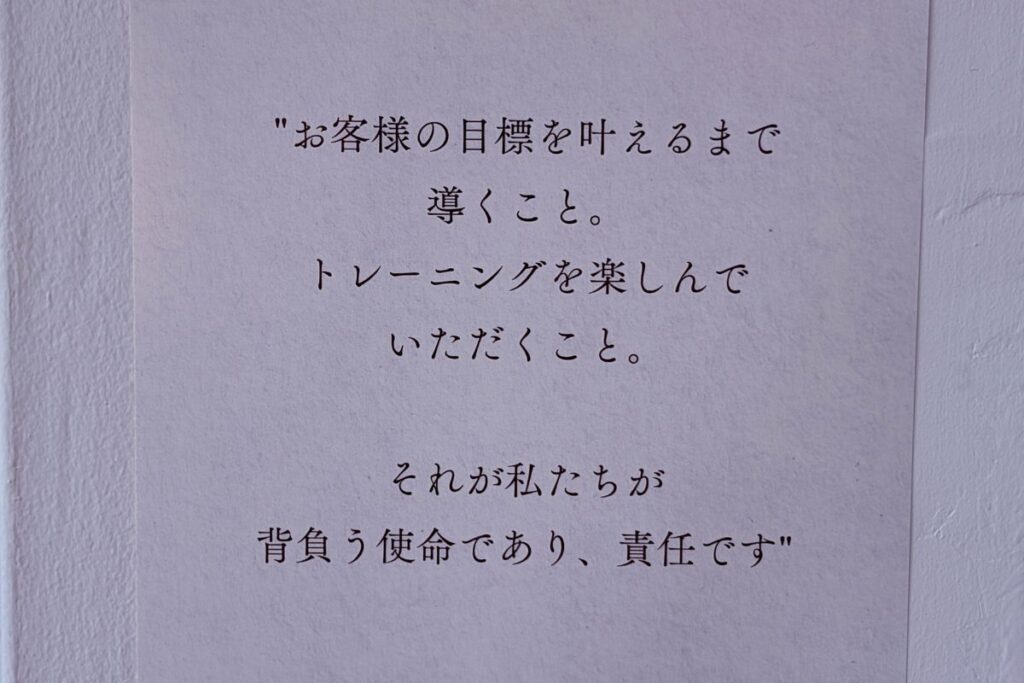 "お客様の目標を叶えるまで
導くこと。
トレーニングを楽しんで
いただくこと。
それが私たちが
背負う使命であり、責任です"